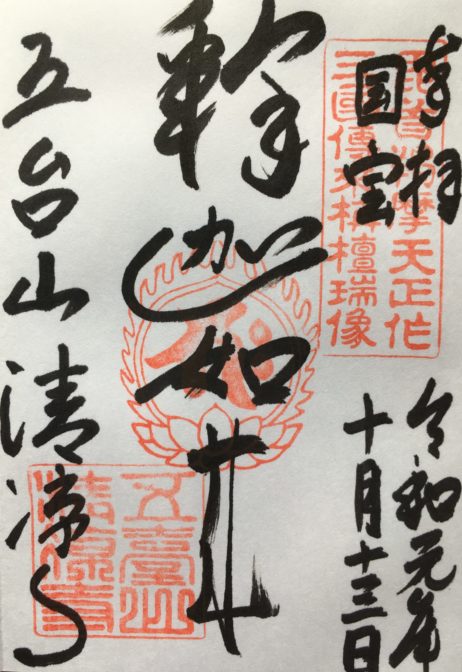 奉拝
国宝
毘首羯摩天正作
三國傳来栴檀瑞像
令和元年
十月十三日
釋迦如来
五台山清凉寺
五臺山
清凉寺